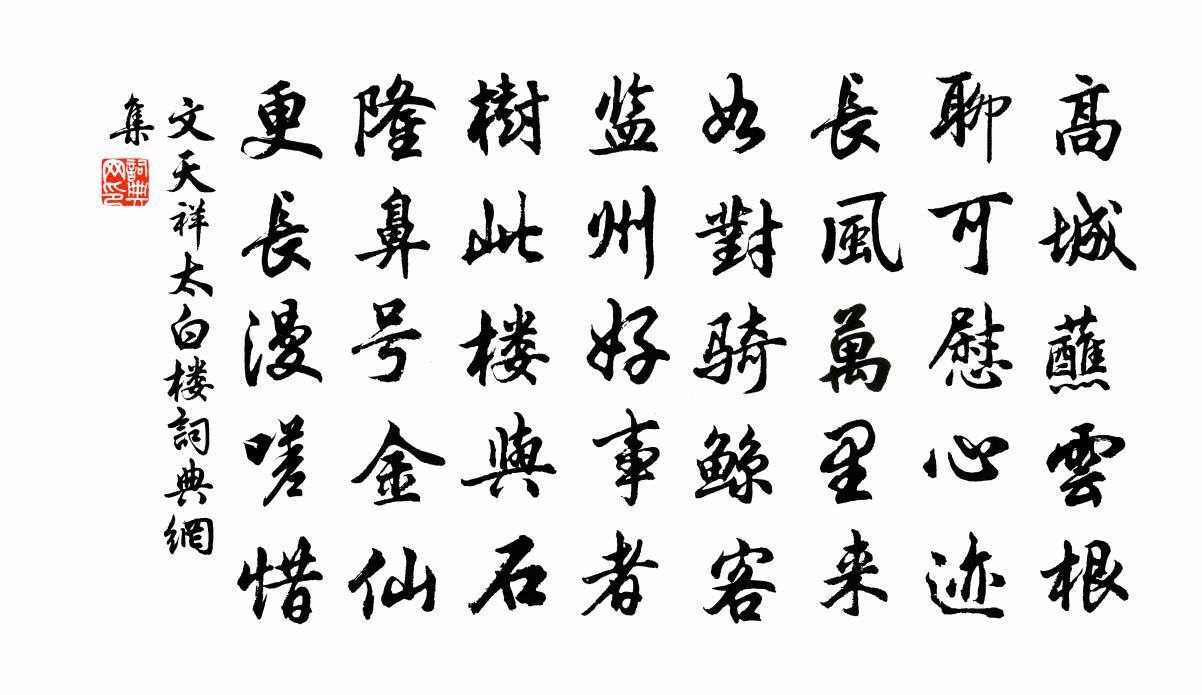 高城蘸雲根
聊可慰心迹
長風萬里来
如對骑鲸客
监州好事者
樹此楼與石
隆鼻号金仙
更長漫嗟惜
文天祥太白楼詞典網
集
詞典
网印